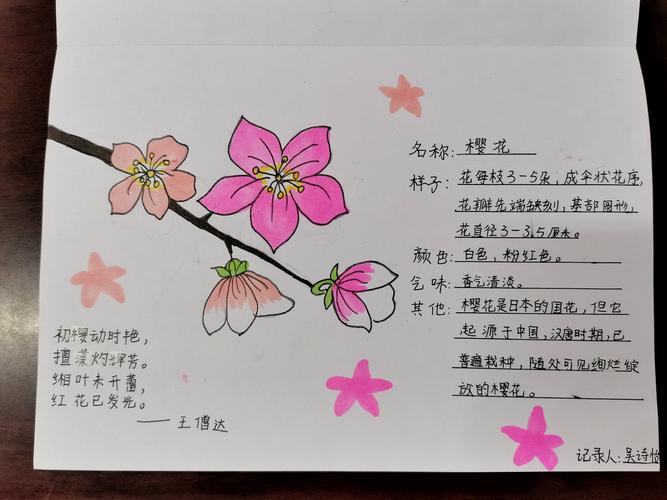 名称: 樱花
样子: 花每枝3-5朵,成伞状花序,
花瓣先端缺刻,基部圆形,
花直径3-3.5厘米。
颜色: 白色,粉红色。
气味: 香气清淡。
其他: 樱花是日本的国花,但它
起源于中国,汉唐时期,已
普遍栽种,随处可见绚烂绽
放的樱花。
初樱动时艳,
擅藻灼辉芳。
缃叶未开蕾,
红花已发光。
——王僧达
记录人:吴诗怡